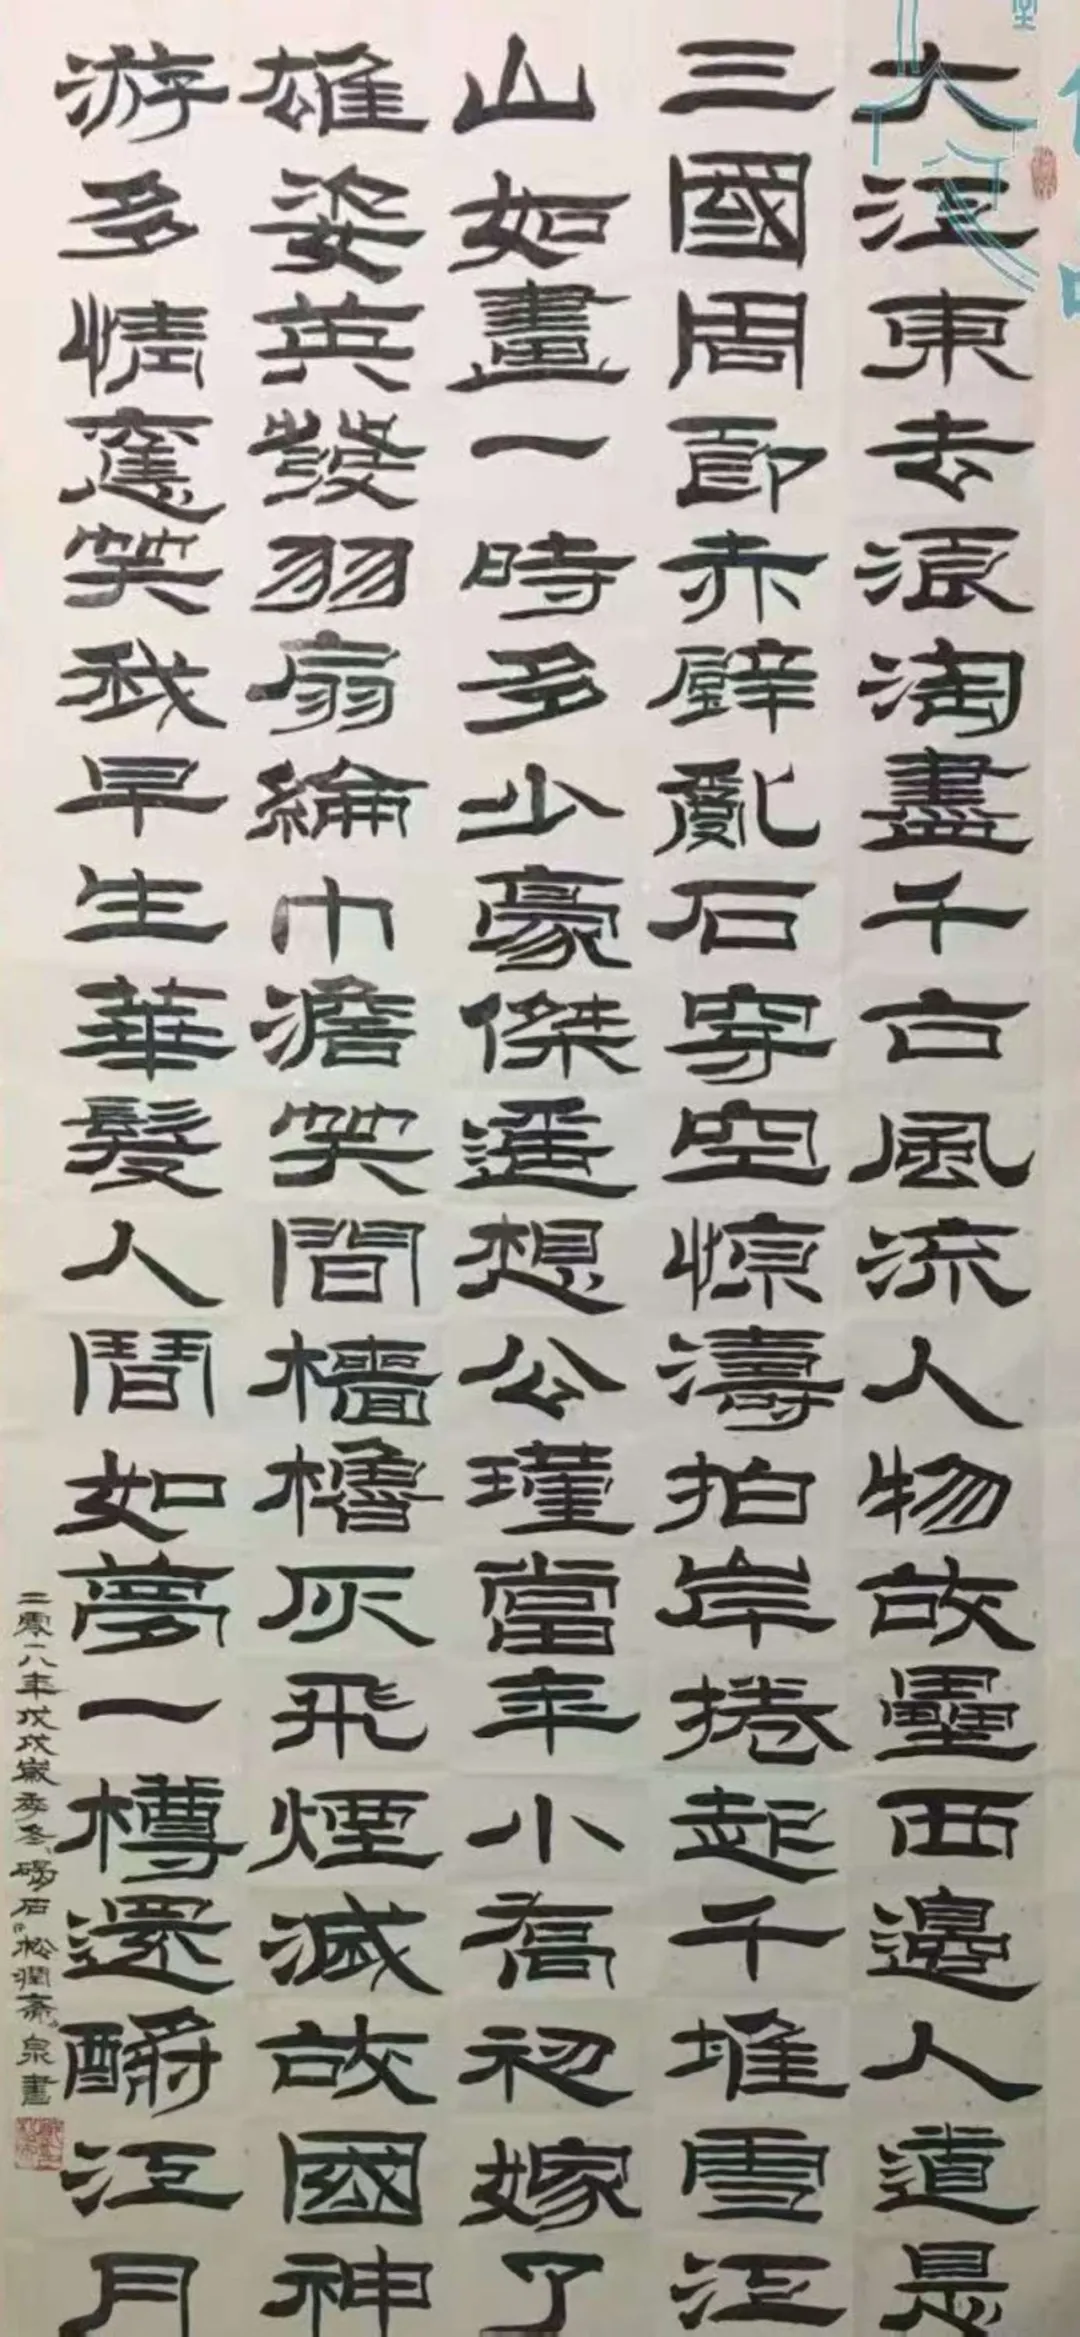 大江東去浪淘盡千古風流人物故壘西邊人道是
三國周郎赤壁亂石穿空惊濤拍岸捲起千堆雪江
山如畫一時多少豪傑遥想公瑾當年小喬初嫁了
雄姿英發羽扇綸巾澹笑間檣櫓灰飛煙滅故國神
游多情應笑我早生華髮人間如夢一樽還酹江月
二零一八年戊戌嵗季冬碣石松潤斋泉畫